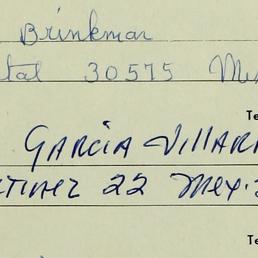 Brinkman
tal 30575 Mex
Te
GARCIA VILLAR
TINEZ 22 Mex.
Te